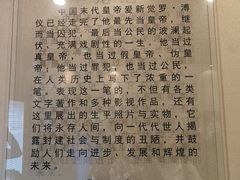 中国末代皇帝爱新觉罗·溥
仪已经走完了他当皇帝，继
而当囚犯，最后当公民的波澜起
伏，充满戏剧性的一生，他当过
真皇帝，也当过假皇帝、伪皇
帝，他当过罪犯，也当过公民，
在人类历史上写下了浓重的一
笔，表现这一笔的，不但有各类
文字著作和多种影视作品，还有
这里展出的生平照片与实物，它
们将永存人间，向一代代世人揭
露封建社会与制度的丑陋，并鼓
励人们走向进步、发展和辉煌的
未来。